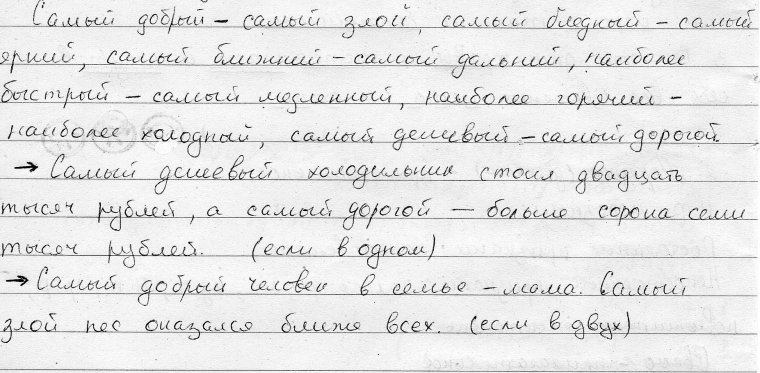 Самый добрый – самый злой, самый бледный – самый
яркий, самый ближний – самый дальний, наиболее
быстрый – самый медленный, наиболее горячий –
наиболее холодный, самый дешевый – самый дорогой
→ Самый дешевый холодильник стоил двадцать
тысяч рублей, а самый дорогой — больше сорока семи
тысяч рублей. (если в одном)
→ Самый добрый человек в семье – мама. Самый
злой пес оказался ближе всех. (если в двух)